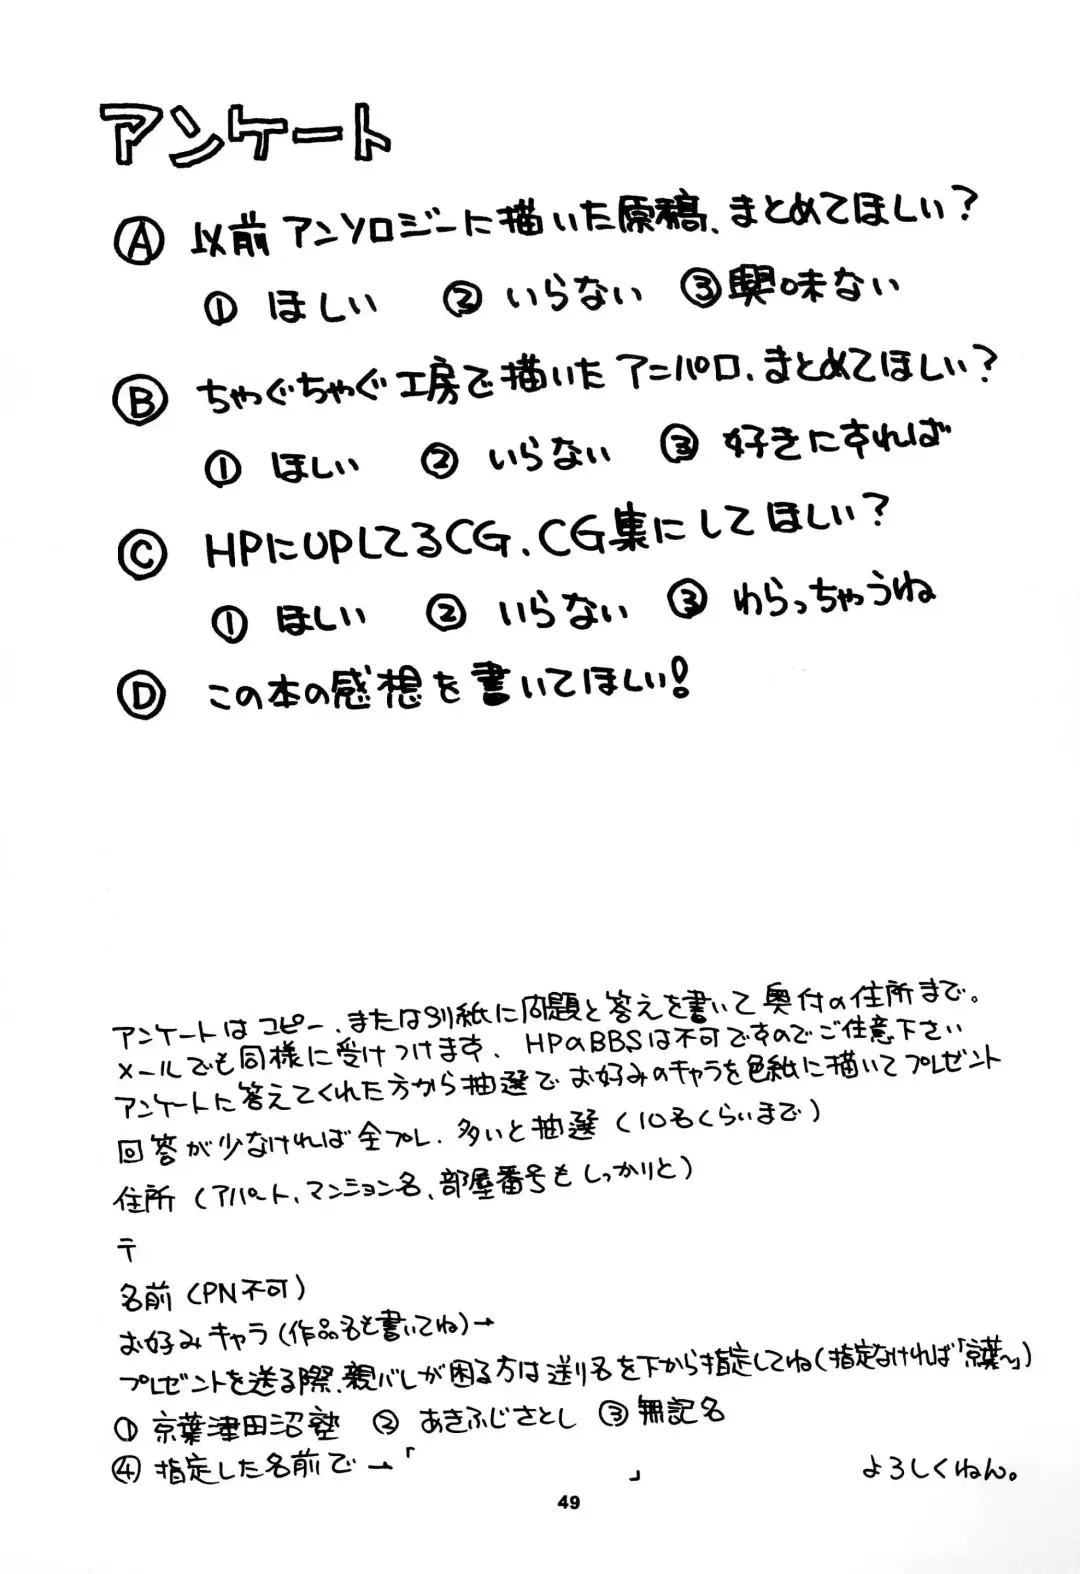 アンケート
Ⓐ 以前アンソロジーに描いた原稿、まとめてほしい？
① ほしい ② いらない ③ 興味ない
Ⓑ ちゃぐちゃぐ工房で描いたアニパロ、まとめてほしい？
① ほしい ② いらない ③ 好きにすれば
Ⓒ HPにUPしてるCG、CG集にしてほしい？
① ほしい ② いらない ③ わらっちゃうね
Ⓓ この本の感想を書いてほしい！
アンケートはコピー、または別紙に問題と答えを書いて奥付の住所まで。
メールでも同様に受けつけます、HPのBBSは不可ですのでご注意下さい
アンケートに答えてくれた方から抽選でお好みのキャラを色紙に描いてプレゼント
回答が少なければ全プレ、多いと抽選（10名くらいまで）
住所（アパート、マンション名、部屋番号もしっかりと）
〒
名前（PN不可）
お好みキャラ（作品名も書いてね）→
プレゼントを送る際、親バレが困る方は送り名を下から指定してね（指定なければ「京葉〜」）
① 京葉津田沼塾 ② あきふじさとし ③ 無記名
④ 指定した名前で→「 」 よろしくねん。
49